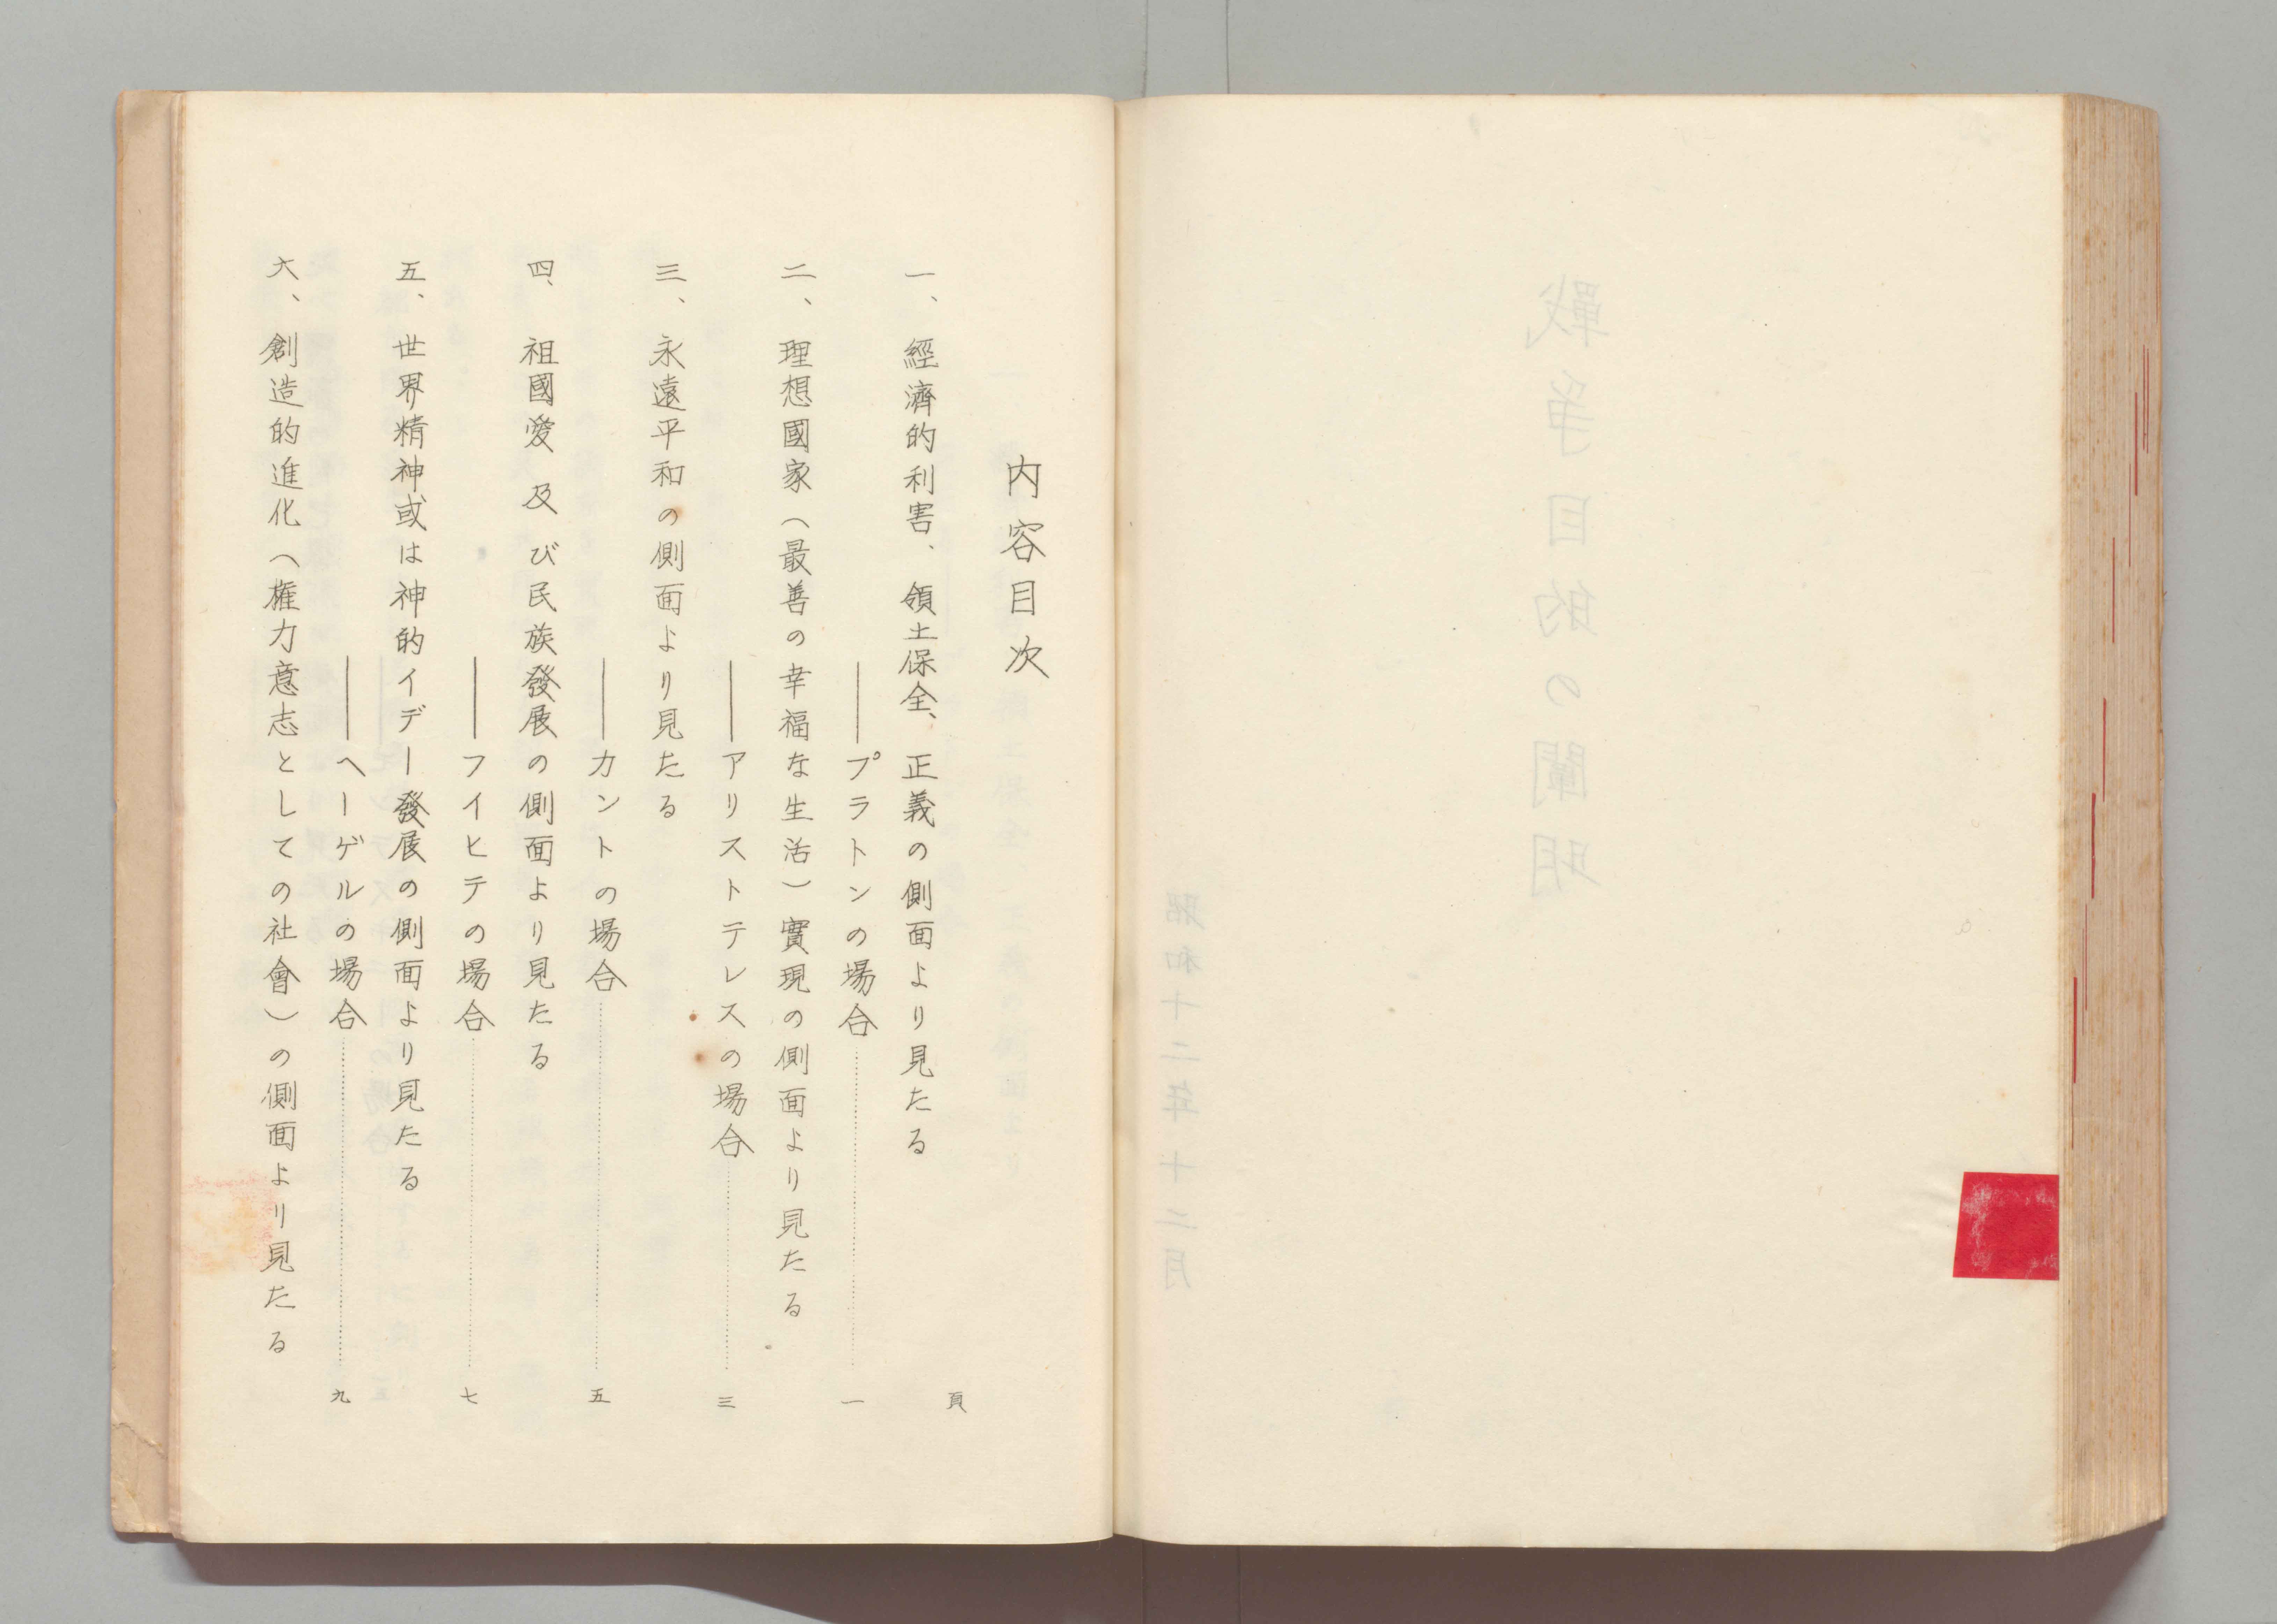 戰爭目的の闡明
昭和十二年十二月
内容目次
頁
一、經濟的利害、領土保全、正義の側面より見たる
――プラトンの場合……一
二、理想國家（最善の幸福な生活）實現の側面より見たる
――アリストテレスの場合……三
三、永遠平和の側面より見たる
――カントの場合……五
四、祖國愛及び民族發展の側面より見たる
――フイヒテの場合……七
五、世界精神或は神的イデー發展の側面より見たる
――ヘーゲルの場合……九
六、創造的進化（権力意志としての社會）の側面より見たる